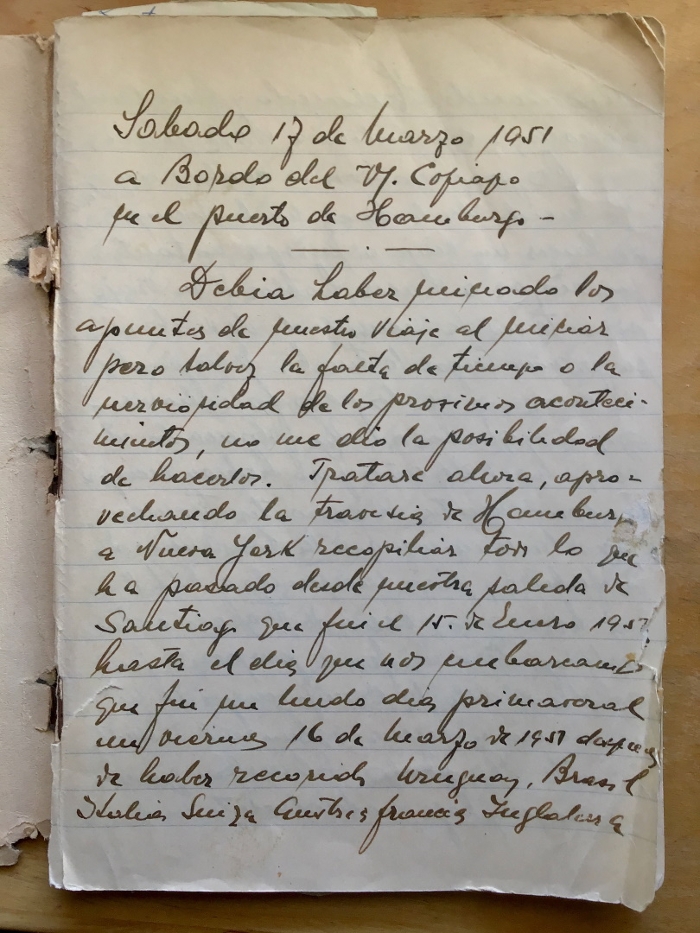 Sabado 17 de Marzo 1951
a Bordo del M. Copiapo
en el puerto de Hamburgo -
Debia haber iniciado los
apuntes de nuestro viaje al iniciar
pero talvez la falta de tiempo o la
nerviosidad de los prosimos aconteci-
mientos, no me dio la posibilidad
de hacerlos. Tratare ahora, apro-
vechando la travesia de Hamburg
a Nueva York recopiliar todo lo que
ha pasado desde nuestra salida de
Santiago que fui el 15. de Enero 1951
hasta el dia que nos embarcamos
que fui un lindo dia primaveral
un viernes 16 de Marzo de 1951 despues
de haber recorrido Uruguay, Brasil
Italia Suiza Austria francia Inglaterra